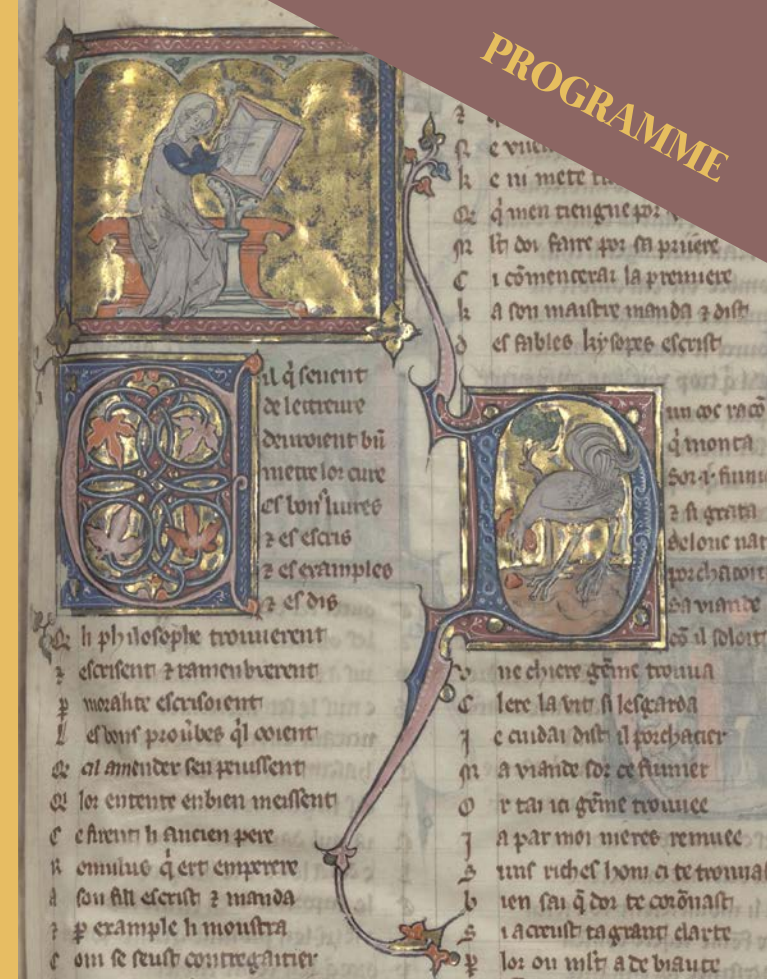 PROGRAMME
il q̄ seuent
de lettreure
deuroient bn̄
mettre lor cure
es bons liures
⁊ es escris
⁊ es examples
⁊ es dis
Q li philosophe trouuerent
⁊ escrisent ⁊ ramenbrerent
p moralite escrisoient
l es bons prou̅bes q̓l ooient
Q cil amender sen peussent
Q lor entente en bien meissent
C e firent li ancien pere
R omulus q̓ ert emperere
A son fill escrist ⁊ manda
⁊ p example li moustra
C om se seust contregaitier
e ni mete
q̓ men tiengne por
M lt doi faire por sa priiere
C i cōmencerai la premiere
k a son maistre manda ⁊ dist
D es fables ky sopes escrist
D un coc racō
q̓ monta
Sor .i. fumi
⁊ si grata
Selonc nat
porchacoit
Sa viande
cō il soloit
V ne chiere gēme trouua
C lere la vit si lesgarda
J e cuidai dist il porchacier
M a viande sor ce fumier
O r tai ici gēme trouuee
J a par moi nieres remuee
S uns riches hom ci te trouuas
b ien sai q̄ dor te corōnast
S i acreust ta grant clarte
P lor ou mlt a de biaute